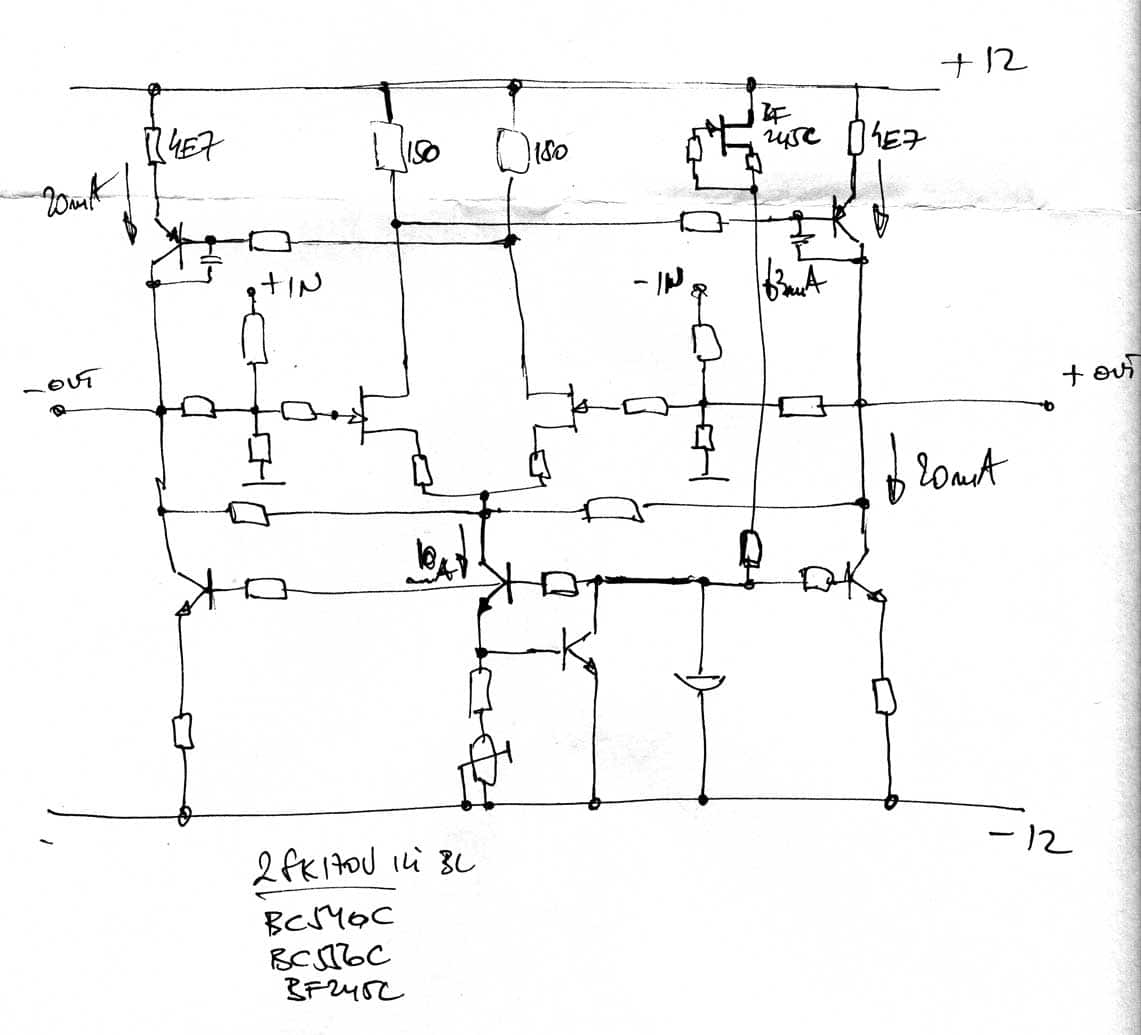 +12
4E7
150
150
BF
245C
4E7
20mA
+IN
-IN
3mA
-OUT
+OUT
20mA
10
mA
-12
-
BC546C
BC556C
BF245C